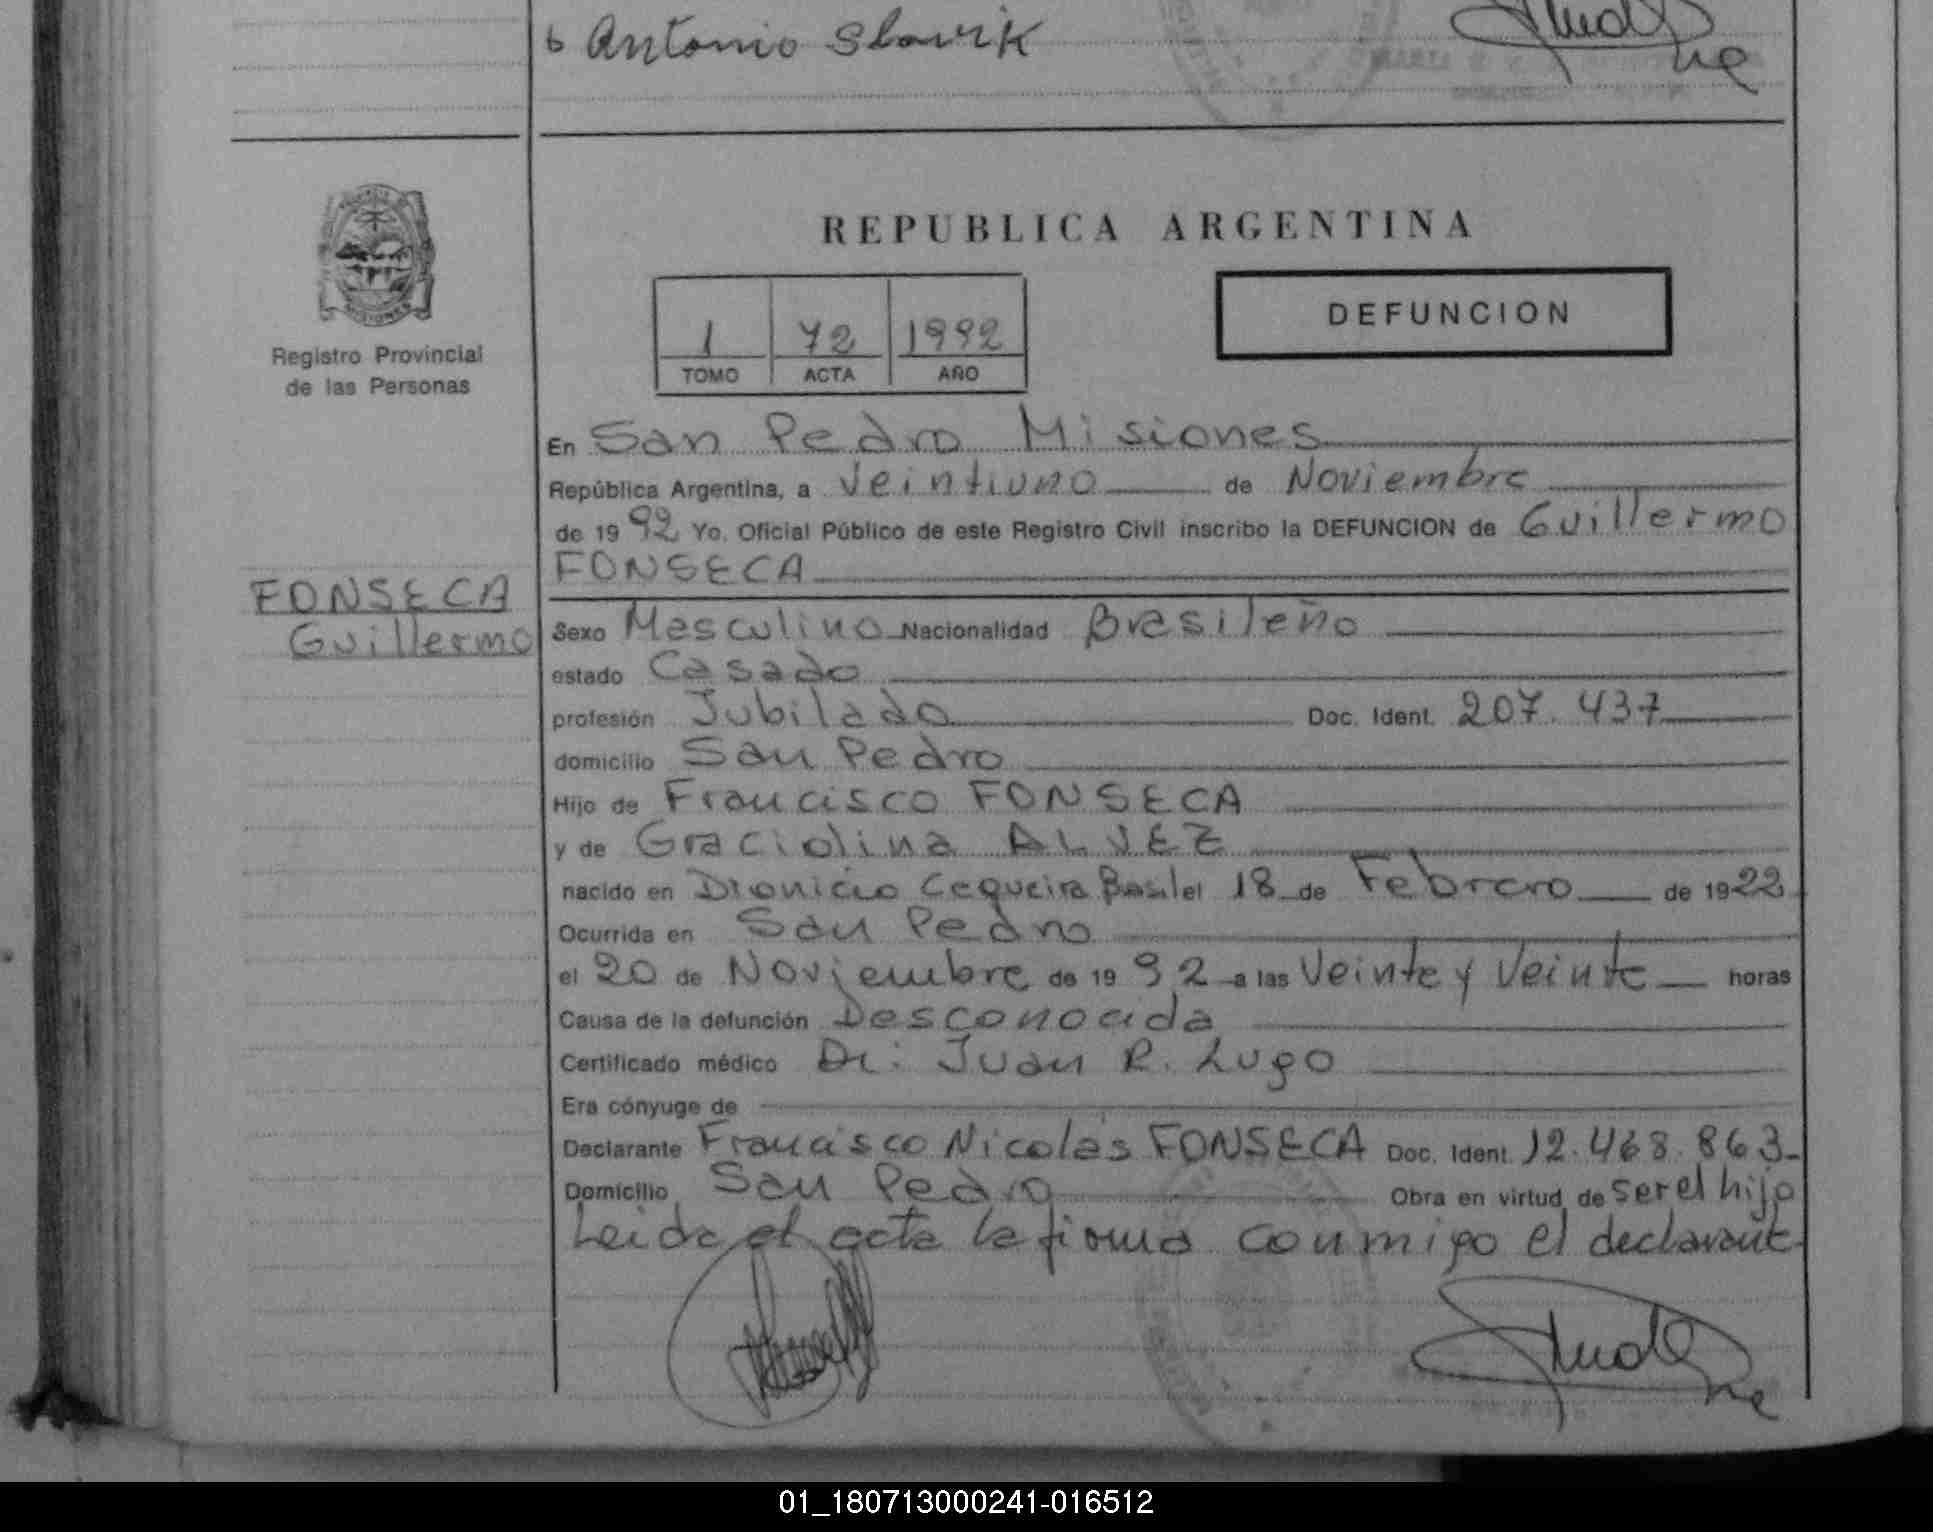 6 Antonio Slavik
REPUBLICA ARGENTINA
DEFUNCION
1 72 1992
TOMO ACTA AÑO
Registro Provincial
de las Personas
En San Pedro Misiones
República Argentina, a veintiuno de Noviembre
de 1992 Yo, Oficial Público de este Registro Civil inscribo la DEFUNCION de Guillermo
FONSECA
FONSECA
Guillermo
Sexo Masculino Nacionalidad Brasileño
estado Casado
profesión Jubilado Doc. Ident. 207.437
domicilio San Pedro
Hijo de Francisco FONSECA
y de Graciolina ALVEZ
nacido en Dionicio Cequeira Brasil el 18 de Febrero de 1922
Ocurrida en San Pedro
el 20 de Noviembre de 1992 a las Veinte y Veinte horas
Causa de la defunción Desconocida
Certificado médico Dr: Juan R. Lugo
Era cónyuge de
Declarante Francisco Nicolás FONSECA Doc. Ident. 12.468.863
Domicilio San Pedro Obra en virtud de ser el hijo
Leida el acta la firma conmigo el declarante
01_180713000241-016512